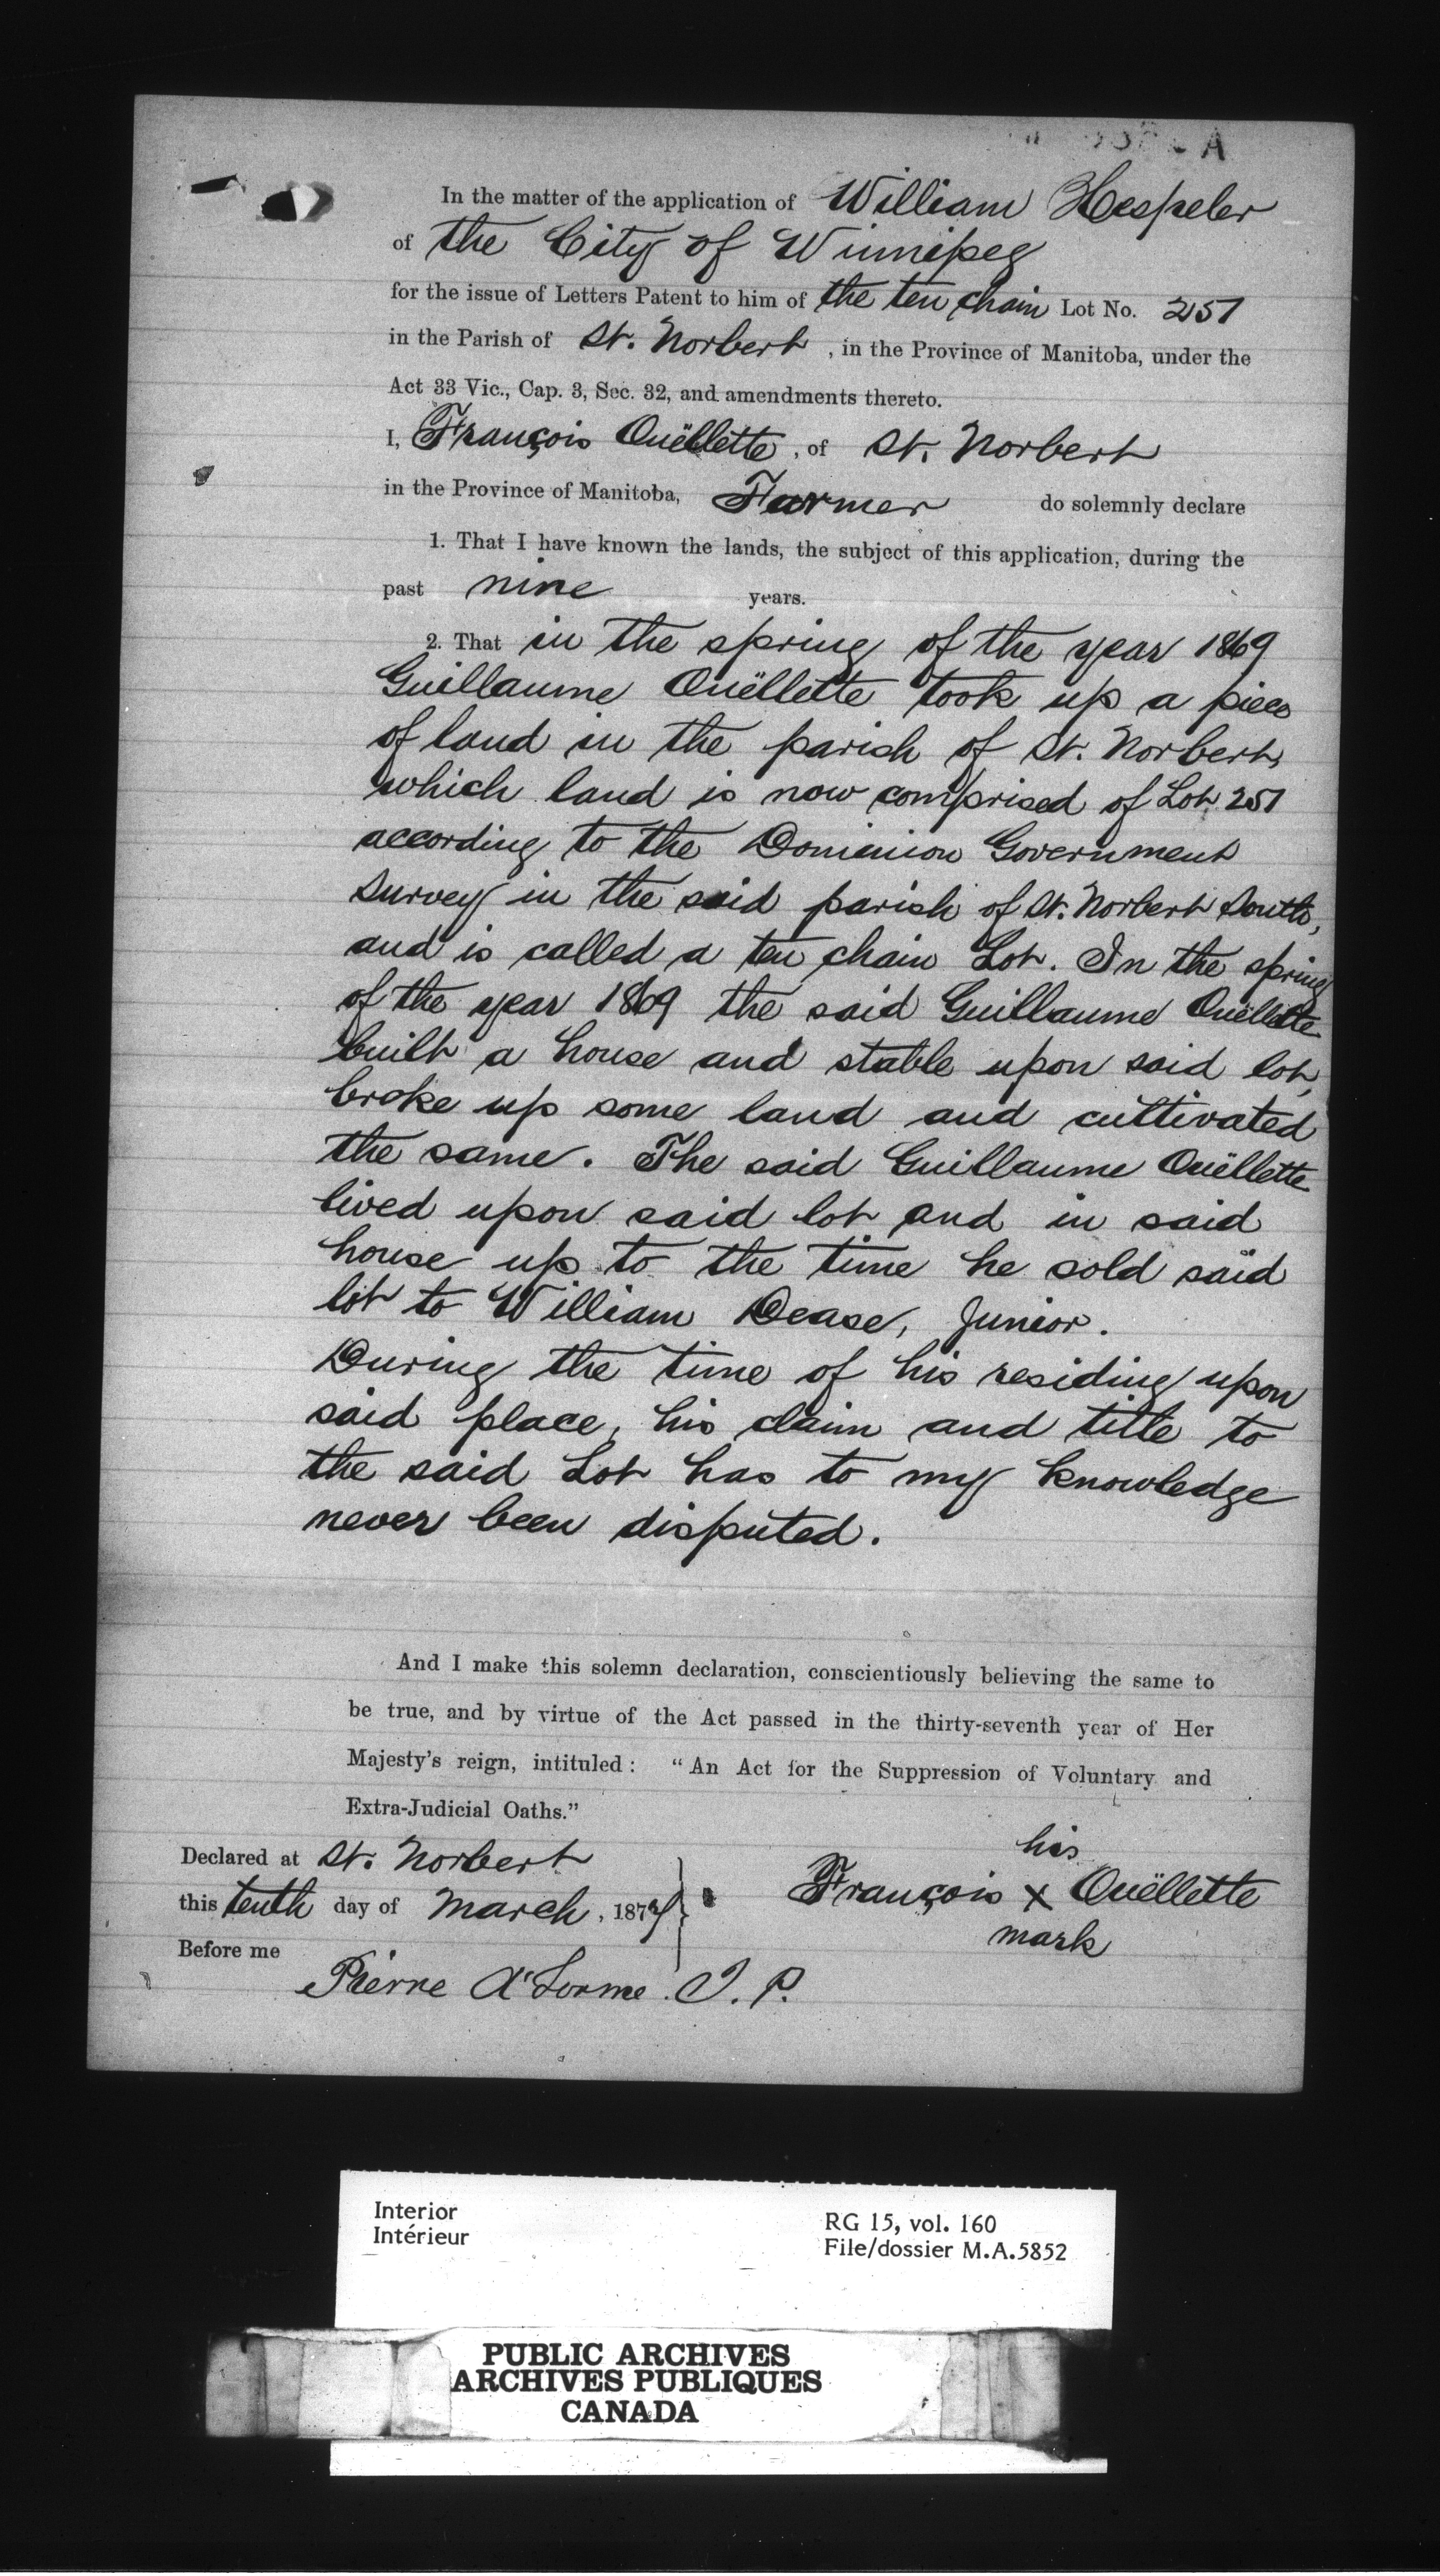 In the matter of the application of William Hespeler
of the City of Winnipeg
for the issue of Letters Patent to him of the ten chain Lot No. 251
in the Parish of St. Norbert, in the Province of Manitoba, under the
Act 33 Vic., Cap. 3, Sec. 32, and amendments thereto.
I, François Ouëllette, of St. Norbert
in the Province of Manitoba, Farmer do solemnly declare
1. That I have known the lands, the subject of this application, during the
past nine years.
2. That in the spring of the year 1869
Guillaume Ouëllette took up a piece
of land in the parish of St. Norbert,
which land is now comprised of Lot 251
according to the Dominion Government
survey in the said parish of St. Norbert South,
and is called a ten chain Lot. In the spring
of the year 1869 the said Guillaume Ouëllette
built a house and stable upon said lot,
broke up some land and cultivated
the same. The said Guillaume Ouëllette
lived upon said lot and in said
house up to the time he sold said
lot to William Dease, Junior.
During the time of his residing upon
said place, his claim and title to
the said Lot has to my knowledge
never been disputed.
And I make this solemn declaration, conscientiously believing the same to
be true, and by virtue of the Act passed in the thirty-seventh year of Her
Majesty's reign, intituled: "An Act for the Suppression of Voluntary and
Extra-Judicial Oaths."
Declared at St. Norbert
this tenth day of March, 187
Before me
his
François x Ouëllette
mark
Pierre D'Lorme. J. P.
Interior
Intérieur
RG 15, vol. 160
File/dossier M.A.5852
PUBLIC ARCHIVES
ARCHIVES PUBLIQUES
CANADA